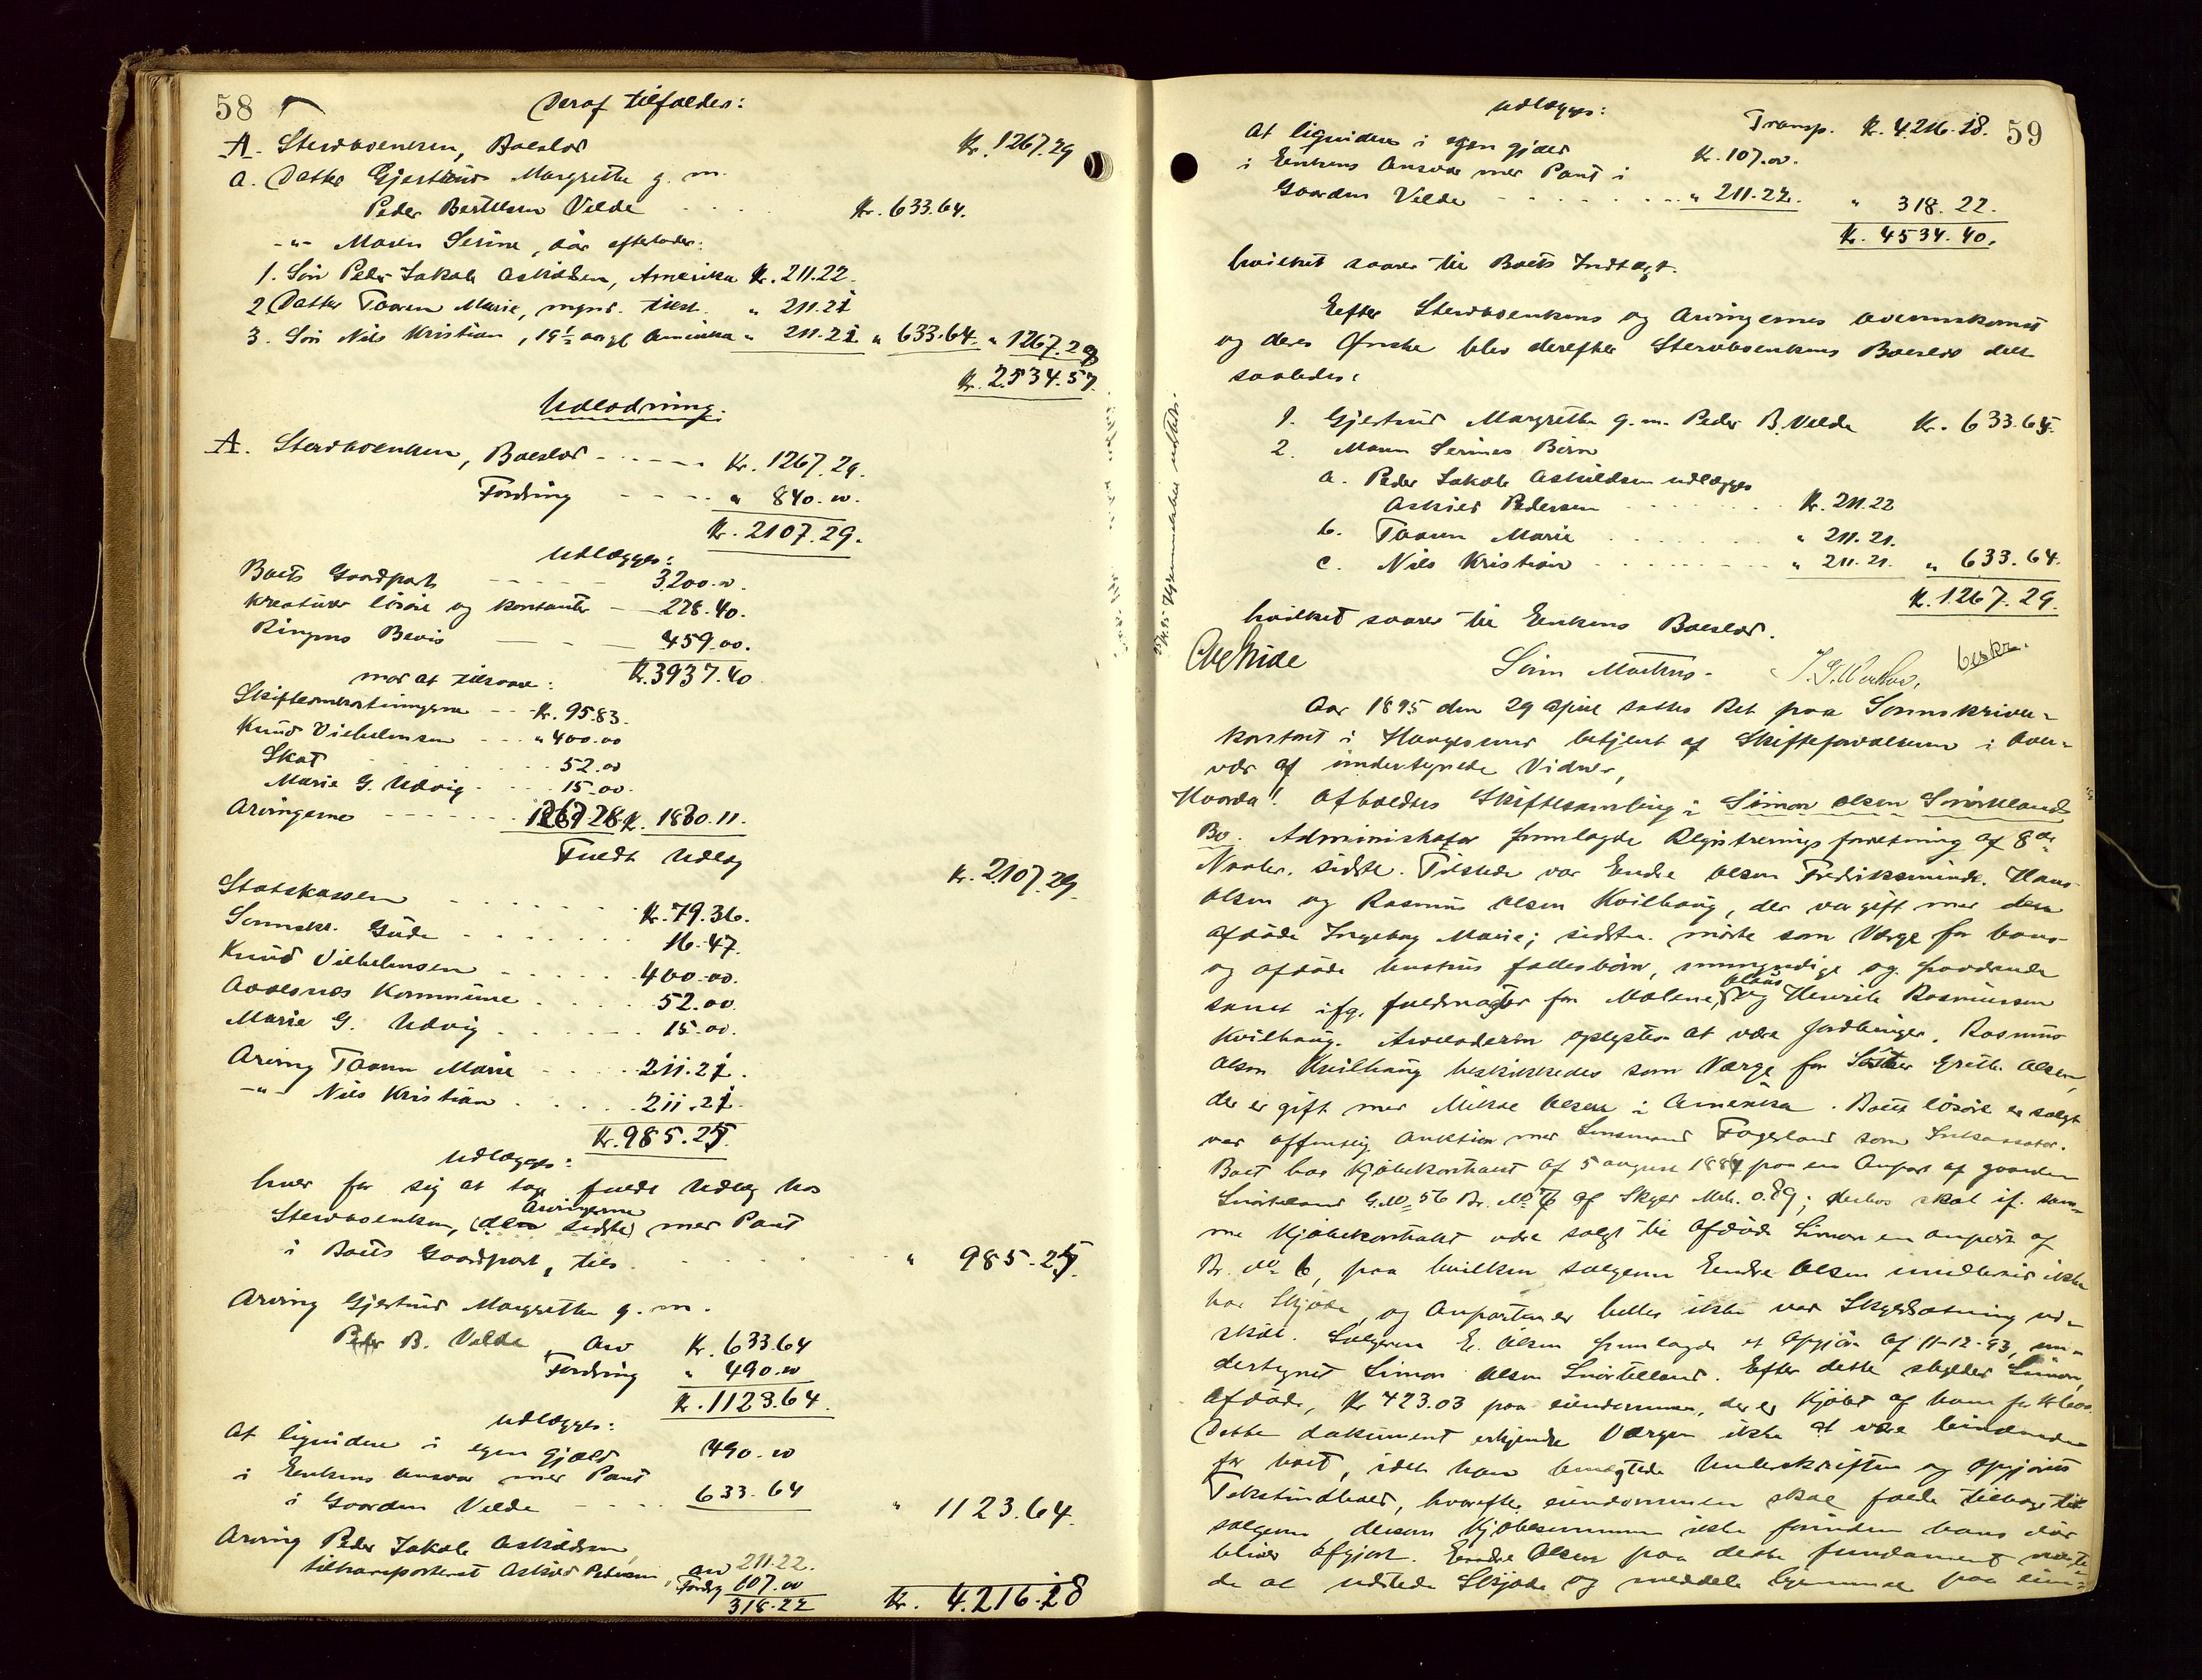 58
Deraf tilfalder:
A. Stervboenken, Boeslod Kr. 1267.29
a. Datter Gjertrud Margrethe g. m.
Peder Bertelsen Velde Kr. 633.64.
-"- Maren Serine, død efterlader:
1. Søn Peder Jakob Askildsen, Amerika Kr. 211.22.
2. Datter Taaren Marie, mynd. tilst. " 211.21
3. Søn Nils Kristian, 19½ aargl Amerika " 211.21 " 633.64. " 1267.28
Kr. 2534.57.
Udlodning.
A. Stervboenken, Boeslod Kr. 1267.29.
Fordring " 840.00.
Kr. 2107.29.
Udlægges:
Boets Gaardpart 3200.00
Kreaturer løsøre og kontanter 278.40.
Ringens Bevis 459.00.
Kr. 3937.40
mod at tilsvare:
Skifteomkostningerne Kr. 95.83.
Knud Vilhelmsen " 400.00
Skat 52.00
Marie G. Udvig 15.00.
Arvingerne 1267.28 Kr. 1830.11.
Fuldt Udlæg Kr. 2107.29
Statskassen Kr. 79.36.
Sorenskr. Gude 16.47.
Knud Vilhelmsen 400.00.
Avaldsnes Kommune 52.00.
Marie G. Udvig 15.00.
Arving Taaren Marie 211.21.
-"- Nils Kristian 211.21.
Kr. 985.25.
Udlægges:
hver for sig at tage fuldt Udlæg hos
Arvingerne
Stervboenken, (den sidste) med Pant
i Boets Gaardpart, tils. " 985.25.
Arving Gjertrud Margrethe g. m.
Peder B. Velde, Arv Kr. 633.64
Fordring " 490.00
Kr. 1123.64.
Udlægges:
At liquidere i egen Gjæld 490.00
i Enkens Ansvar med Pant
i Gaarden Velde 633.64 " 1123.64.
Arving Peder Jakob Askildsen,
tiltransporteret Askild Pedersen, arv 211.22.
Fordrg 107.00
318.22 Kr. 4.216.18
59
Udlægges: Transp. Kr. 4.216.18.
At liquidere i egen gjæld Kr. 107.00.
i Enkens Ansvar med Pant i
Gaarden Velde " 211.22. " 318.22.
Kr. 4534.40.
hvilket svarer til Boets Indtægt.
Efter Stervboenkens og Arvingernes overenskomst
og deres Ønske blev derefter Stervboenkens Boeslod delt
saaledes:
1. Gjertrud Margrethe g. m. Peder B. Velde Kr. 633.65.
2. Maren Serines Børn
a. Peder Jakob Askildsen udlægges
Askild Pedersen Kr. 211.22
b. Taaren Marie " 211.21.
c. Nils Kristian " 211.21. " 633.64.
Kr. 1267.29.
hvilket svarer til Enkens Boeslod.
Sørin beskr.
Aar 1895 den 29 April sattes Ret paa Sorenskriver-
kontoret i Haugesund betjent af Skifteforvalteren i Over-
vær af undertegnede Vidner,
Hvorda! Afholdtes Skiftesamling i Simon Olsen Snørteland
Bo. Administrator fremlagde Registreringsforretning af 8de
Novbr. sidste. Tilstede var Endre Olsen Fredriksminde, Hans
Olsen og Rasmus Olsen Kvilhaug, der var gift med den
afdøde Ingeborg Marie; sidstn. mødte som Værge for hans
og afdøde hustrus fællesbørn, umyndige og fraværende
Olaus
samt ifg. fuldmagter for Malene, og Henrik Rasmussen
Kvilhaug. Arveladeren oplystes at være Jordbruger. Rasmus
Olsen Kvilhaug beskikkedes som Værge for Søster Grethe Olsen,
der er gift med Mikal Olsen i Amerika. Boets løsøre er solgt
ved offentlig Auktion med Lensmand Fagerland som Inkassator.
Boet har Kjøbekontrakt af 5 august 1887 paa en Anpart af gaarden
Snørteland G. No 56 Br. No 6 af Skyld Mrk. 0.89; derhos skal if. sam-
me Kjøbekontrakt være solgt til Afdøde Simon en anpart af
Br. No 6, paa hvilken sælgeren Endre Olsen imidlertid ikke
har Skjøde, og Anparten er heller ikke ved Skyldsætning ud-
skilt. Sælgeren E. Olsen fremlagde et Opgjør af 11-12-93, un-
dertegnet Simon Olsen Snørteland. Efter dette skylder Simon,
Afdøde, Kr. 423.03 paa eiendommen, der er kjøbt af ham for Kr.
Dette dokument erkjendte Værgen ikke at være bindende
for boet, idet han benegtede Underskriften og opgjørets
Tekstindhold, hvorefter eiendommen skal falde tilbage til
sælgeren, dersom Kjøbesummen ikke forinden hans død
bliver afgjort. Endre Olsen paa dette fundament
de at udstede Skjøde og meddele hjemmel paa eien-